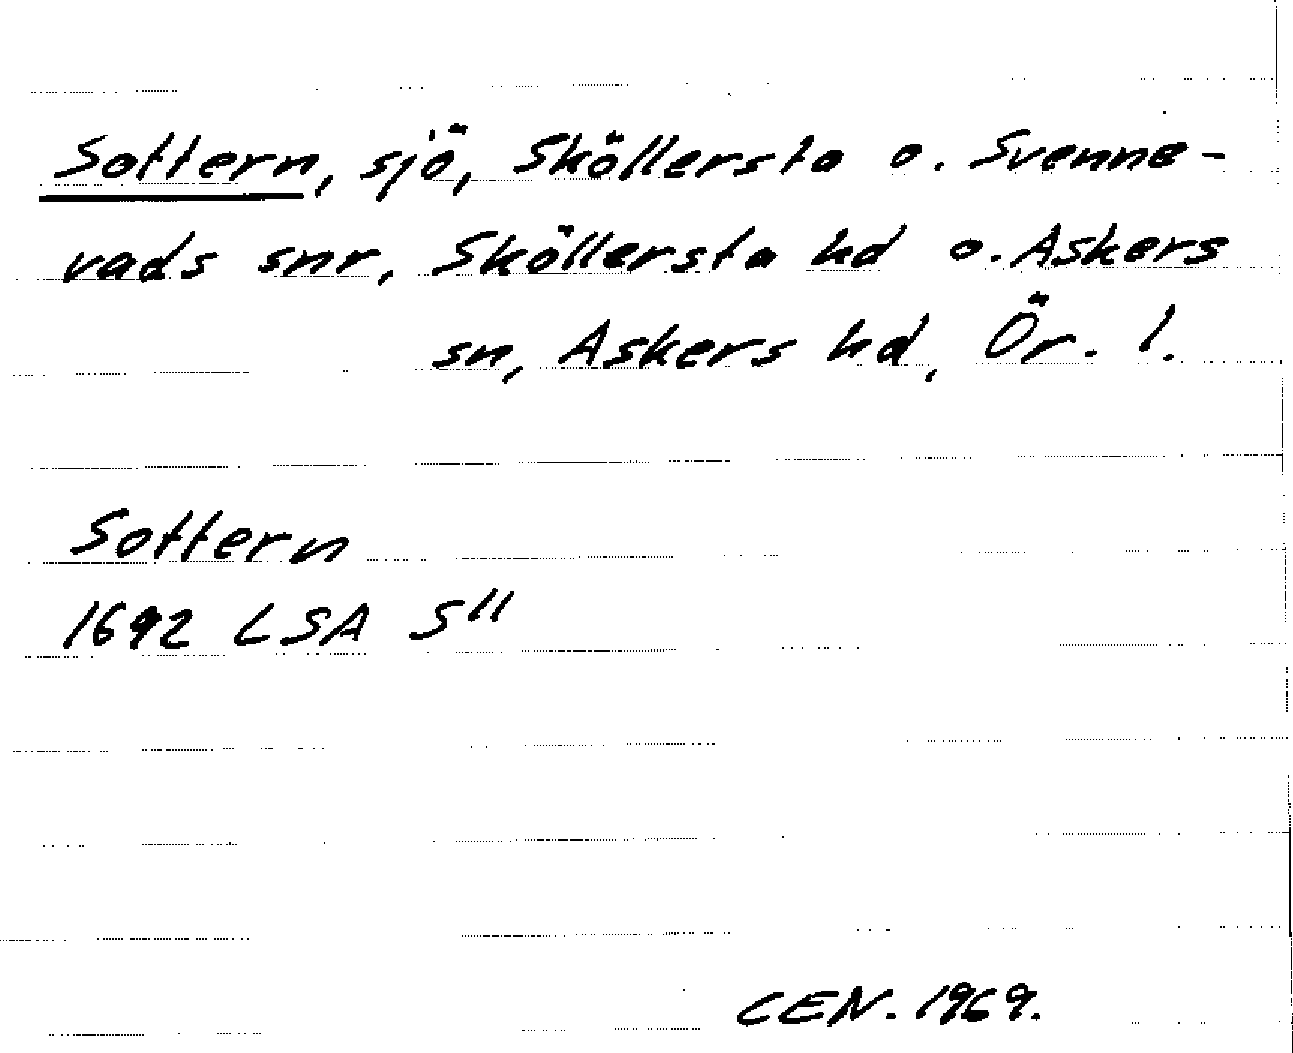 Sottern, sjö, Sköllersta o. Svenne-
vads snr, Sköllersta hd o. Askers
sn, Askers hd, Ör. l.
Sottern
1692 LSA S11
CEN. 1969.